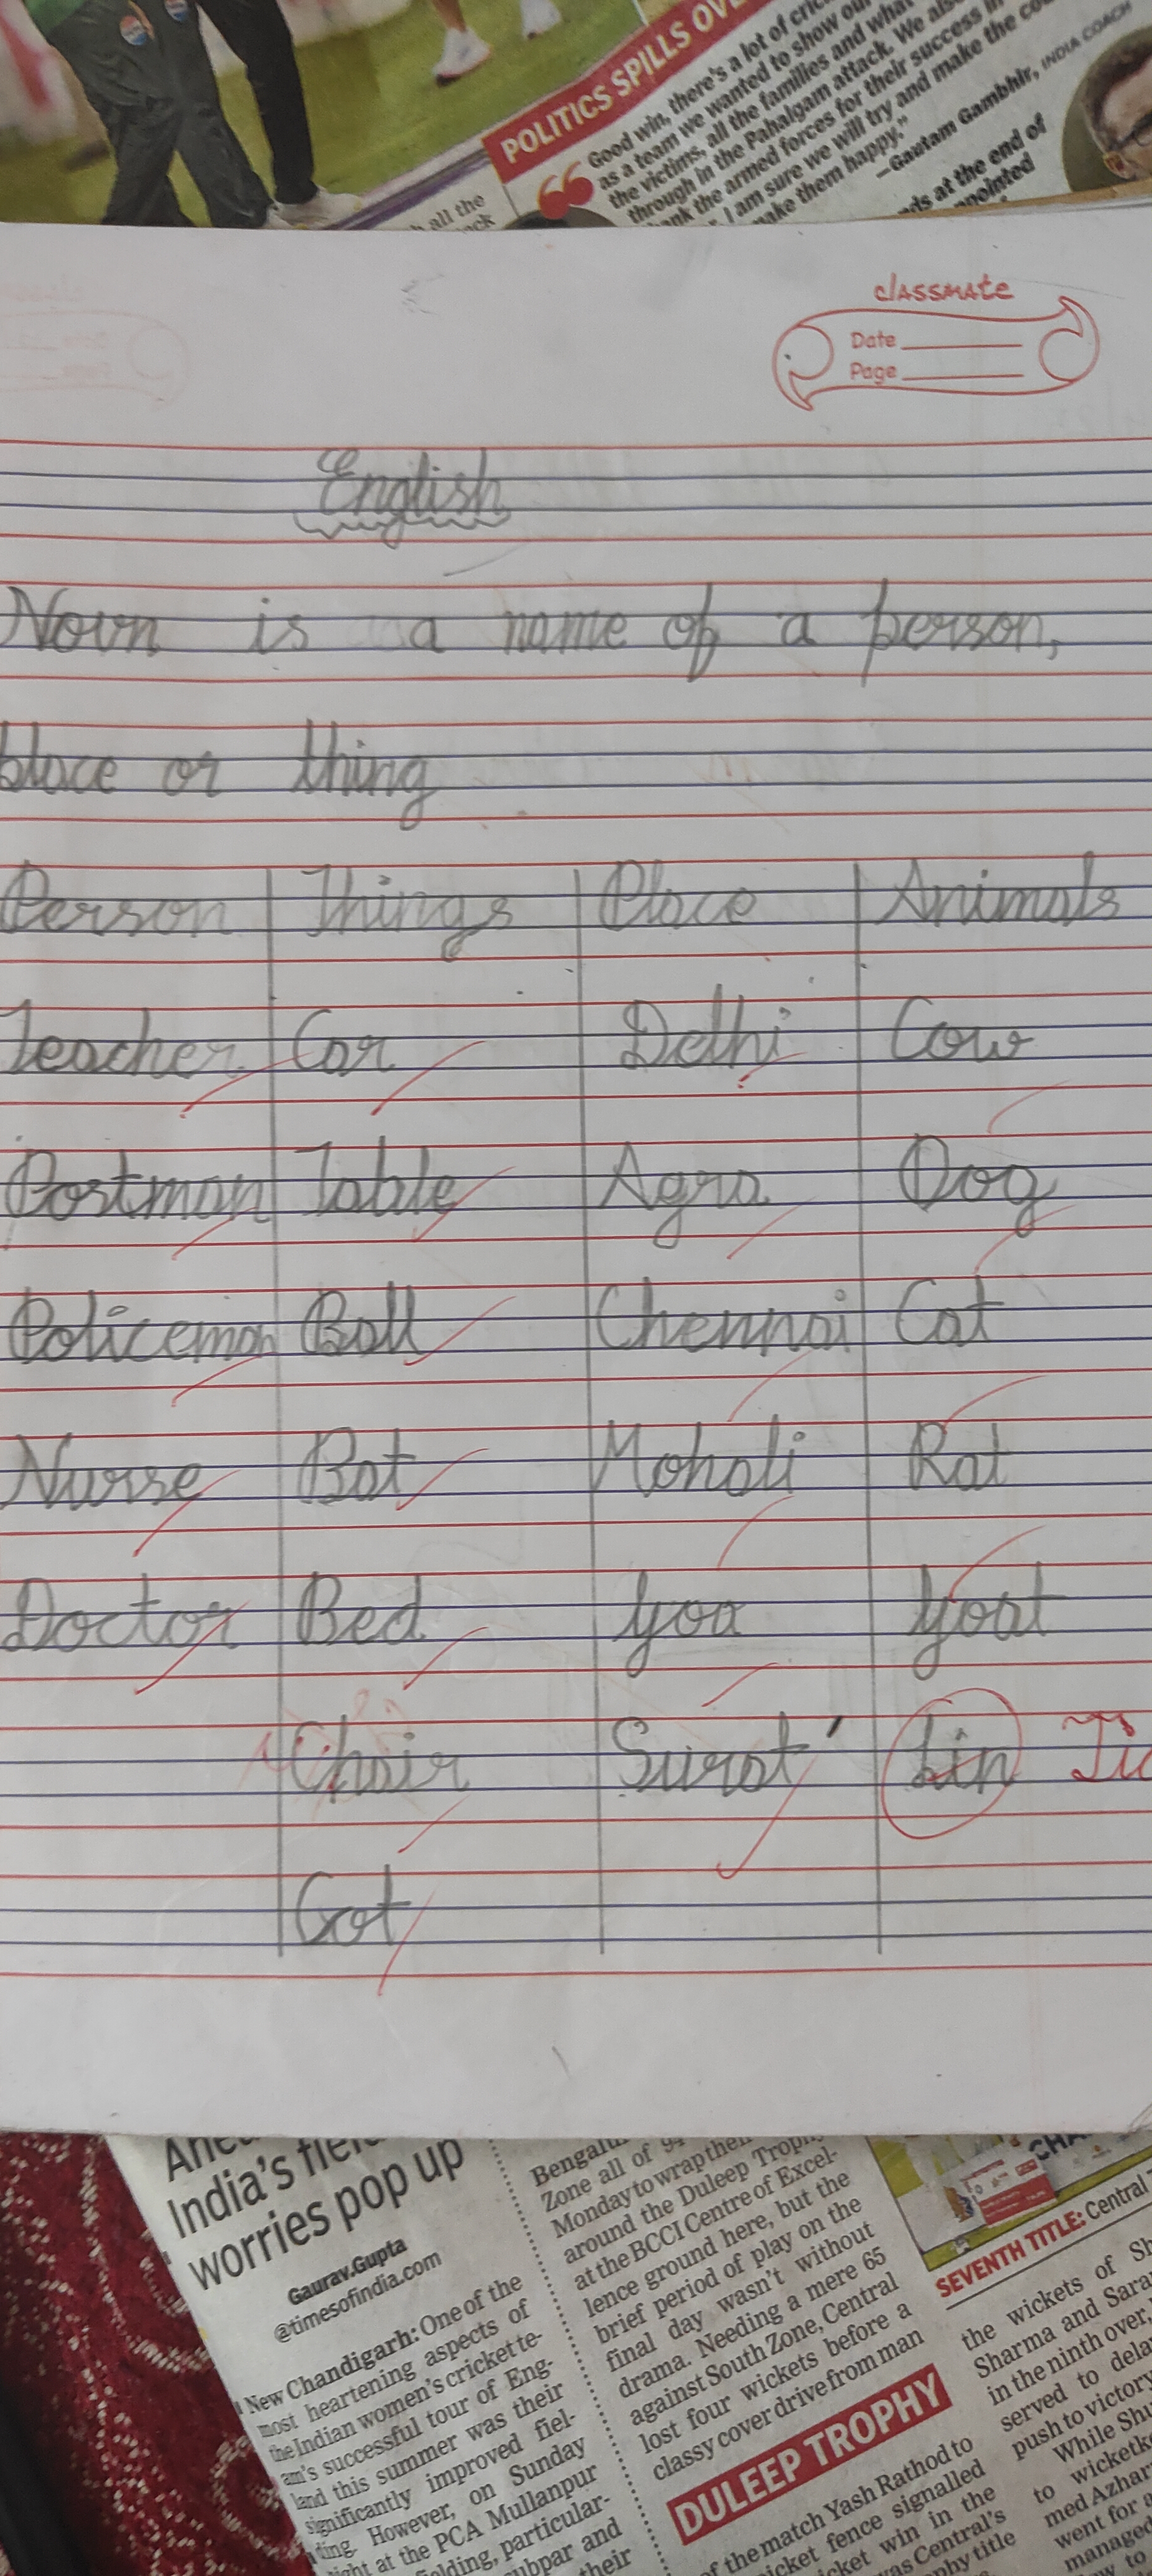 POLITICS SPILLS OV
Good win, there's a lot of cric
as a team we wanted to show our
the victims, all the families and what
through in the Pahalgam attack. We also
ank the armed forces for their success in
I am sure we will try and make the co
make them happy."
—Gautam Gambhir, INDIA COACH
ds at the end of
ppointed
h all the
ck
classmate
Date
Page
English
Noun is a name of a person,
place or thing
Person Things Place Animals
Teacher Car Delhi Cow
Postman Table Agra Dog
Policeman Ball Chennai Cat
Nurse Bat Mohali Rat
Doctor Bed Goa Goat
Chair Surat Lin
Cot
India's fiel
worries pop up
Gaurav.Gupta
@timesofindia.com
New Chandigarh: One of the
most heartening aspects of
the Indian women's cricket te-
am's successful tour of Eng-
land this summer was their
significantly improved fiel-
ding. However, on Sunday
ight at the PCA Mullanpur
fielding, particular-
ubpar and
their
Bengalu
Zone all of 94
Monday to wrap then
around the Duleep Trophy
at the BCCI Centre of Excel-
lence ground here, but the
brief period of play on the
final day wasn't without
drama. Needing a mere 65
against South Zone, Central
lost four wickets before a
classy cover drive from man
DULEEP TROPHY
of the match Yash Rathod to
icket fence signalled
icket win in the
was Central's
phy title
SEVENTH TITLE: Central
the wickets of Sh
Sharma and Saran
in the ninth over,
served to delay
push to victory
While Shu
to wicketke
med Azhar
went for a
managed
to